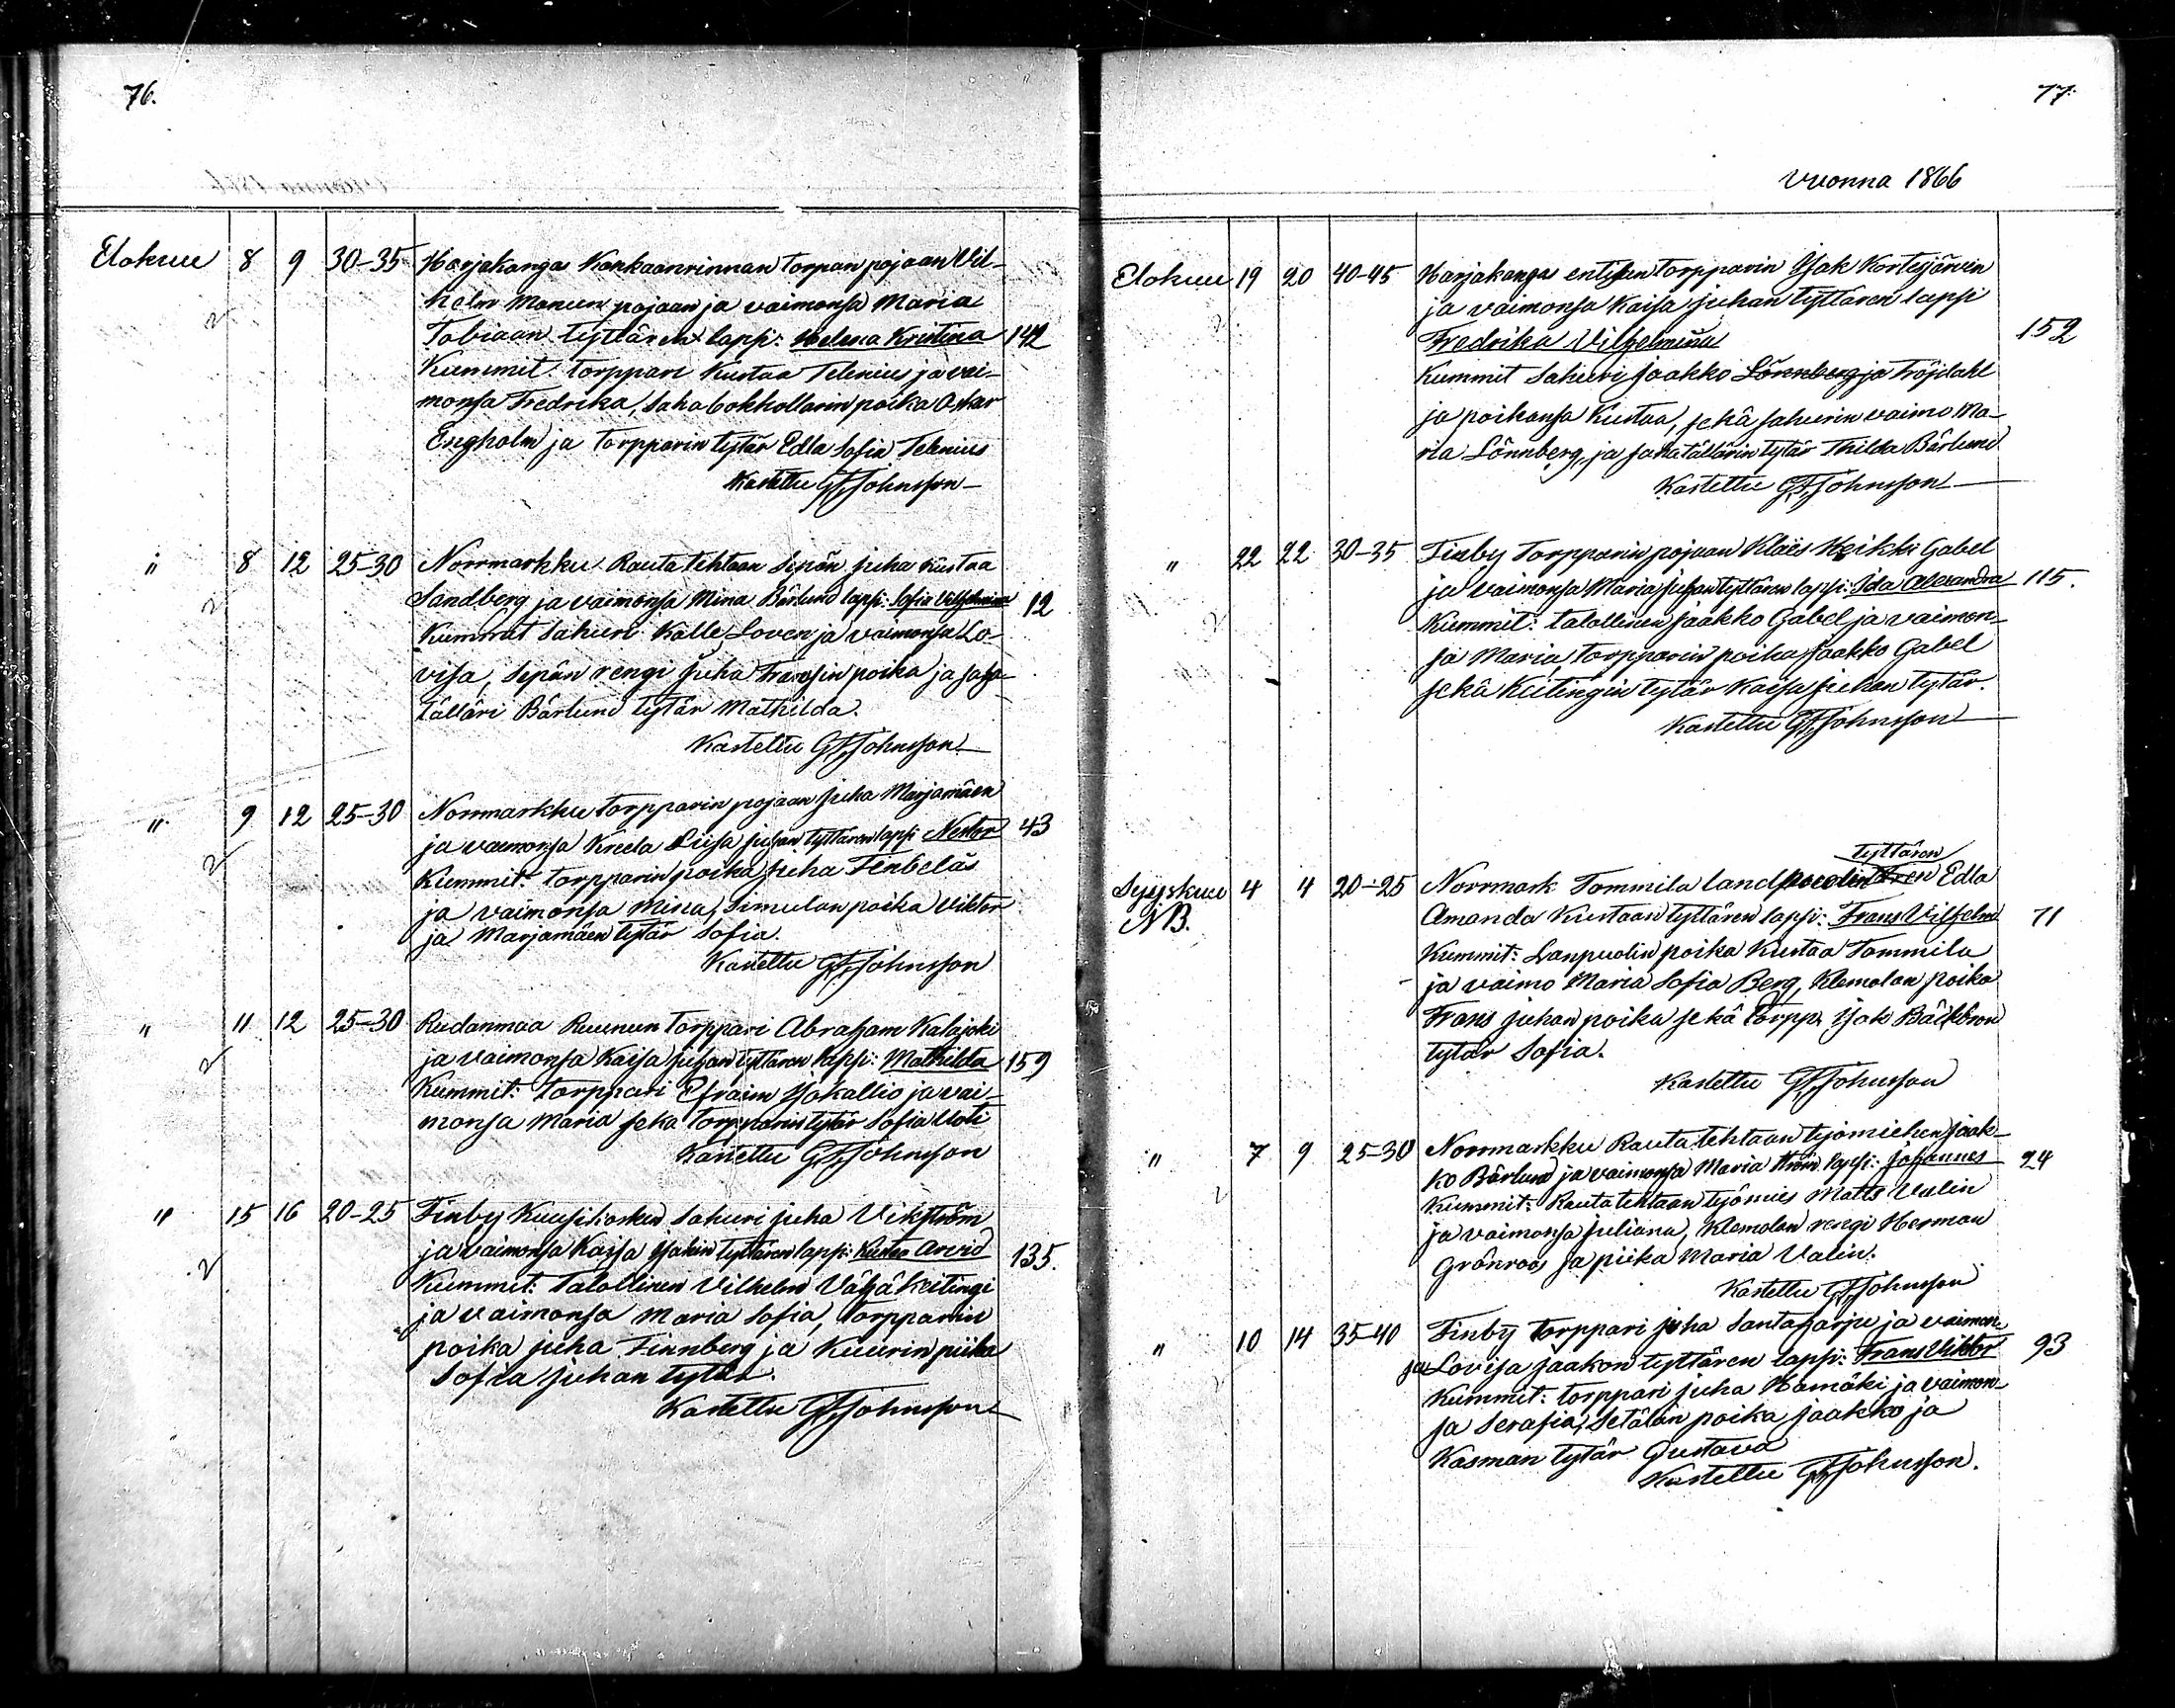 76.
Elokuu 8 9 30-35 Harjakangas Kankaanrinnan torpan pojaan Vil-
helm Manuun pojaan ja vaimonsa Maria
Tobiaan tyttären lapsi: Helena Kristina 142
Kummit: torppari Kustaa Telenius ja vai-
monsa Fredrika, Saha bokhollarin poika Oskar
Engholm ja torpparin tytär Edla Sofia Telenius
Kastettu G.F. Johnsson
" 8 12 25-30 Norrmarkku Rauta tehtaan Sepän Juha Kustaa
Sandberg ja vaimonsa Mina Bärlund lapsi: Sofia Vilhelmina 12
Kummit Sahuri Kalle Loven ja vaimonsa Lo-
visa, Sepän rengi Juha Fransin poika ja saha-
tälläri Bärlund tytär Mathilda.
Kastettu G.F. Johnsson
" 9 12 25-30 Norrmarkku torpparin pojaan Juha Marjamäen
ja vaimonsa Kreeta Liisa Juhan tyttären lapsi Nestor 43
Kummit: torpparin poika Juha Finbeläs
ja vaimonsa Mina, Simulan poika Viktor
ja Marjamäen tytär Sofia.
Kastettu G.F. Johnsson
" 11 12 25-30 Rudanmaa Ruunun torppari Abraham Kalajoki
ja vaimonsa Kaisa Juhan tyttären lapsi: Mathilda 159
Kummit: torppari Efraim Isokallio ja vai-
monsa Maria sekä torpparin tytär Sofia Uoti
Kastettu G.F. Johnsson
" 15 16 20-25 Finby Kuusikosken Sahuri Juha Vikström
ja vaimonsa Kaisa Isakin tyttären lapsi: Kustaa Arvid 135.
Kummit: Talollinen Vilhelm Vähäkeitingi
ja vaimonsa Maria Sofia, torpparin
poika Juha Finnberg ja Kuurin piika
Sofia Juhan tytär.
Kastettu G.F. Johnsson
77.
Vuonna 1866
Elokuu 19 20 40-45 Harjakangas entisen torpparin Isak Kortejärven
ja vaimonsa Kaisa Juhan tyttären lapsi
Fredrika Vilhelmina 152
Kummit Sahuri Jaakko Lönnberg ja Fröjdahl
ja poikansa Kustaa, sekä sahurin vaimo Ma-
ria Lönnberg, ja sahatällärin tytär Thilda Bärlund
Kastettu G.F. Johnsson
" 22 22 30-35 Finby Torpparin pojaan Klaës Heikki Gabel
ja vaimonsa Maria Juhan tyttären lapsi: Ida Alexandra 115.
Kummit: talollinen Jaakko Gabel ja vaimon-
sa Maria, torpparin poika Jaakko Gabel
sekä Kiitingin tytär Kaisa Juhan tytär.
Kastettu G.F. Johnsson
tyttären
Syyskuu 4 4 20-25 Norrmark Tommila landpuolin Edla
NB. Amanda Kustaan tyttären lapsi: Frans Vilhelm 71
Kummit: Lanpuolin poika Kustaa Tommila
ja vaimo Maria Sofia Berg, Klemolan poika
Frans Juhan poika sekä torpp. Isak Bäckbron
tytär Sofia.
Kastettu G.F. Johnsson
" 7 9 25-30 Norrmarkku Rauta tehtaan tyjömiehen Jaak-
ko Bärlund ja vaimonsa Maria Ström lapsi: Johannes 24
Kummit: Rauta tehtaan tyjömies Matts Valin
ja vaimonsa Juliana, Klemolan rengi Herman
Grönroos ja piika Maria Valin.
Kastettu G.F. Johnsson
" 10 14 35-40 Finby torppari Juha Santaharju ja vaimon-
sa Lovisa Jaakon tyttären lapsi: Frans Viktor 93
Kummit: torppari Juha Hamäki ja vaimon-
sa Serafia, Setälän poika Jaakko ja
Kasman tytär Gustava
Kastettu G.F. Johnsson.